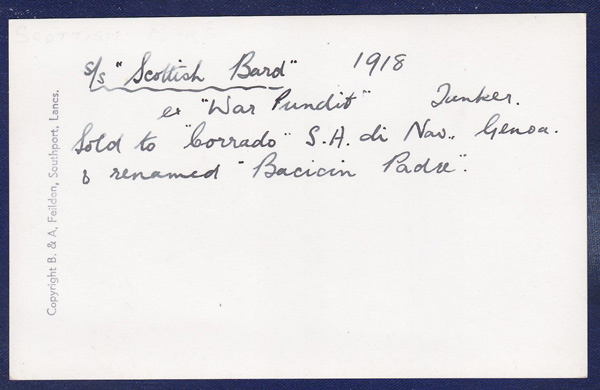 s/s "Scottish Bard" 1918
ex "War Pundit" Tanker.
Sold to "Corrado" S.A. di Nav., Genoa.
& renamed "Bacicin Padre".
Copyright B. & A. Feildon, Southport, Lancs.